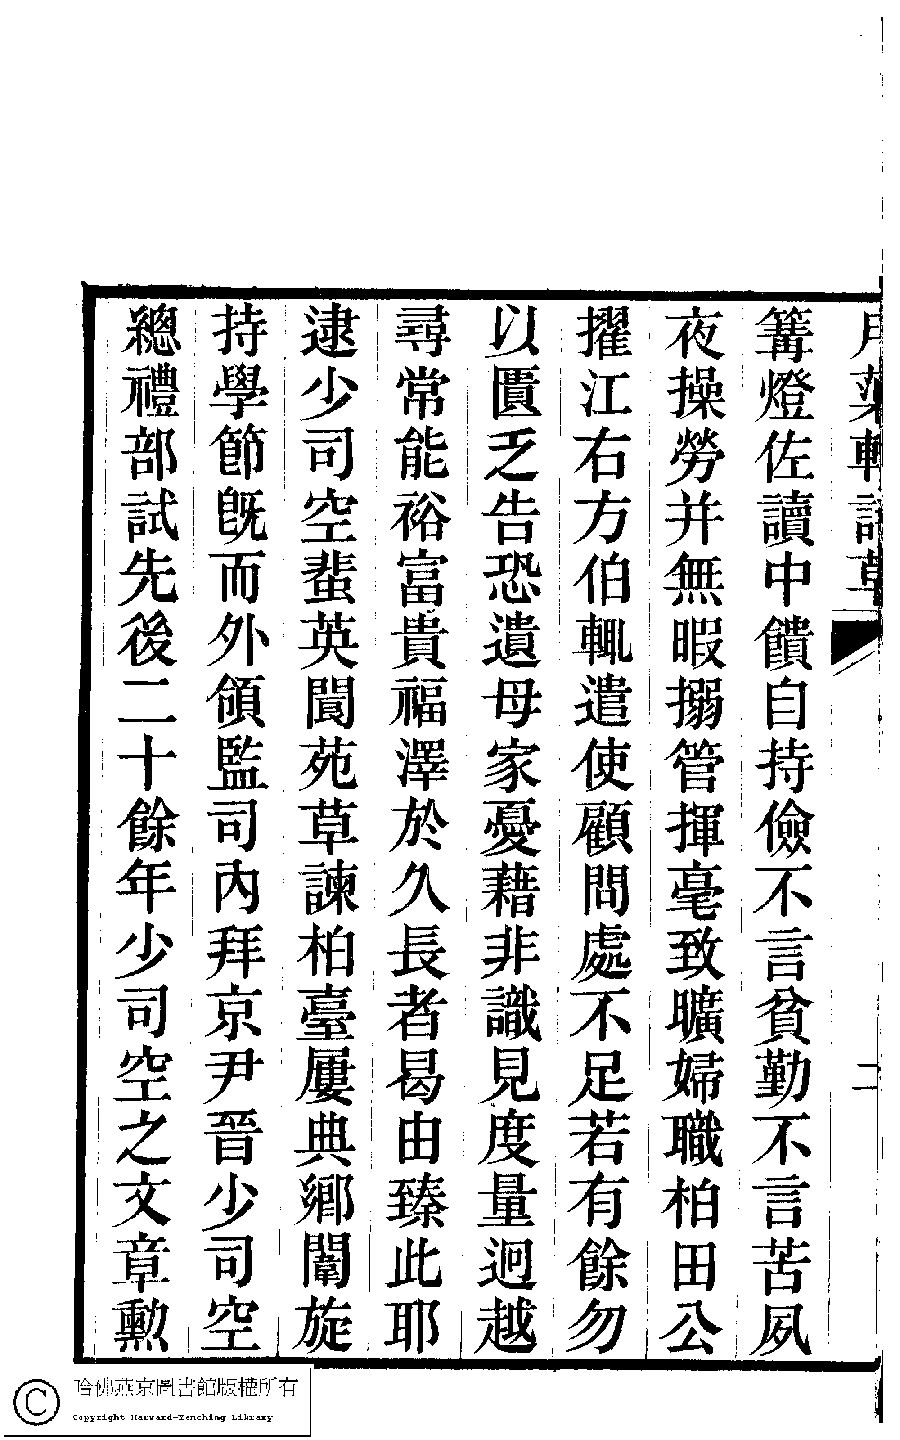 月蕖軒詩草
二
篝燈佐讀中饋自持儉不言貧勤不言苦夙
夜操勞并無暇搦管揮毫致曠婦職柏田公
擢江右方伯輒遣使顧問處不足若有餘勿
以匱乏告恐遺母家憂藉非識見度量迥越
尋常能裕富貴福澤於久長者曷由臻此耶
逮少司空蜚英閬苑草諫柏臺屢典鄉闈旋
持學節旣而外領監司內拜京尹晉少司空
總禮部試先後二十餘年少司空之文章勲
哈佛燕京圖書館版權所有
Copyright Harvard-Yenching Library